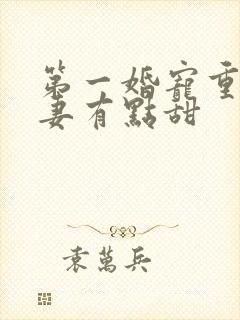 第一婚寵重
妻有點甜
袁萬兵